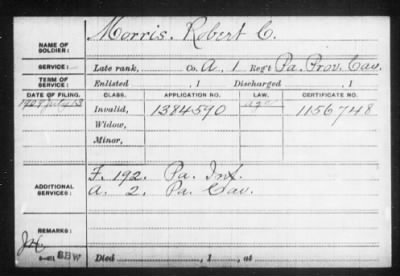 NAME OF SOLDIER: Morris, Robert C.
SERVICE: Late rank, Co. A, 1 Reg't Pa. Prov. Cav.
TERM OF SERVICE: Enlisted , 1 Discharged , 1
DATE OF FILING. CLASS. APPLICATION NO. LAW. CERTIFICATE NO.
Invalid, 1384590 1156748
Widow,
Minor,
ADDITIONAL SERVICES: F. 192. Pa. Inf.
A. 2. Pa. Cav.
REMARKS:
BBW
Died , 1 , at